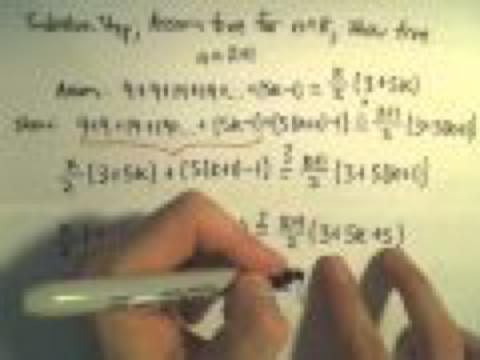 Induction Step, Assume true for n=k, show true
n=k+1
Assume 4+9+14+19+... +(5k-1) = k/2 (3+5k)
Show: 4+9+14+19+... + (5k-1)+(5(k+1)-1) ≟ k+1/2 (3+5(k+1))
k/2 (3+5k) + (5(k+1)-1) ≟ k+1/2 (3+5(k+1))
≟ k+1/2 (3+5k+5)